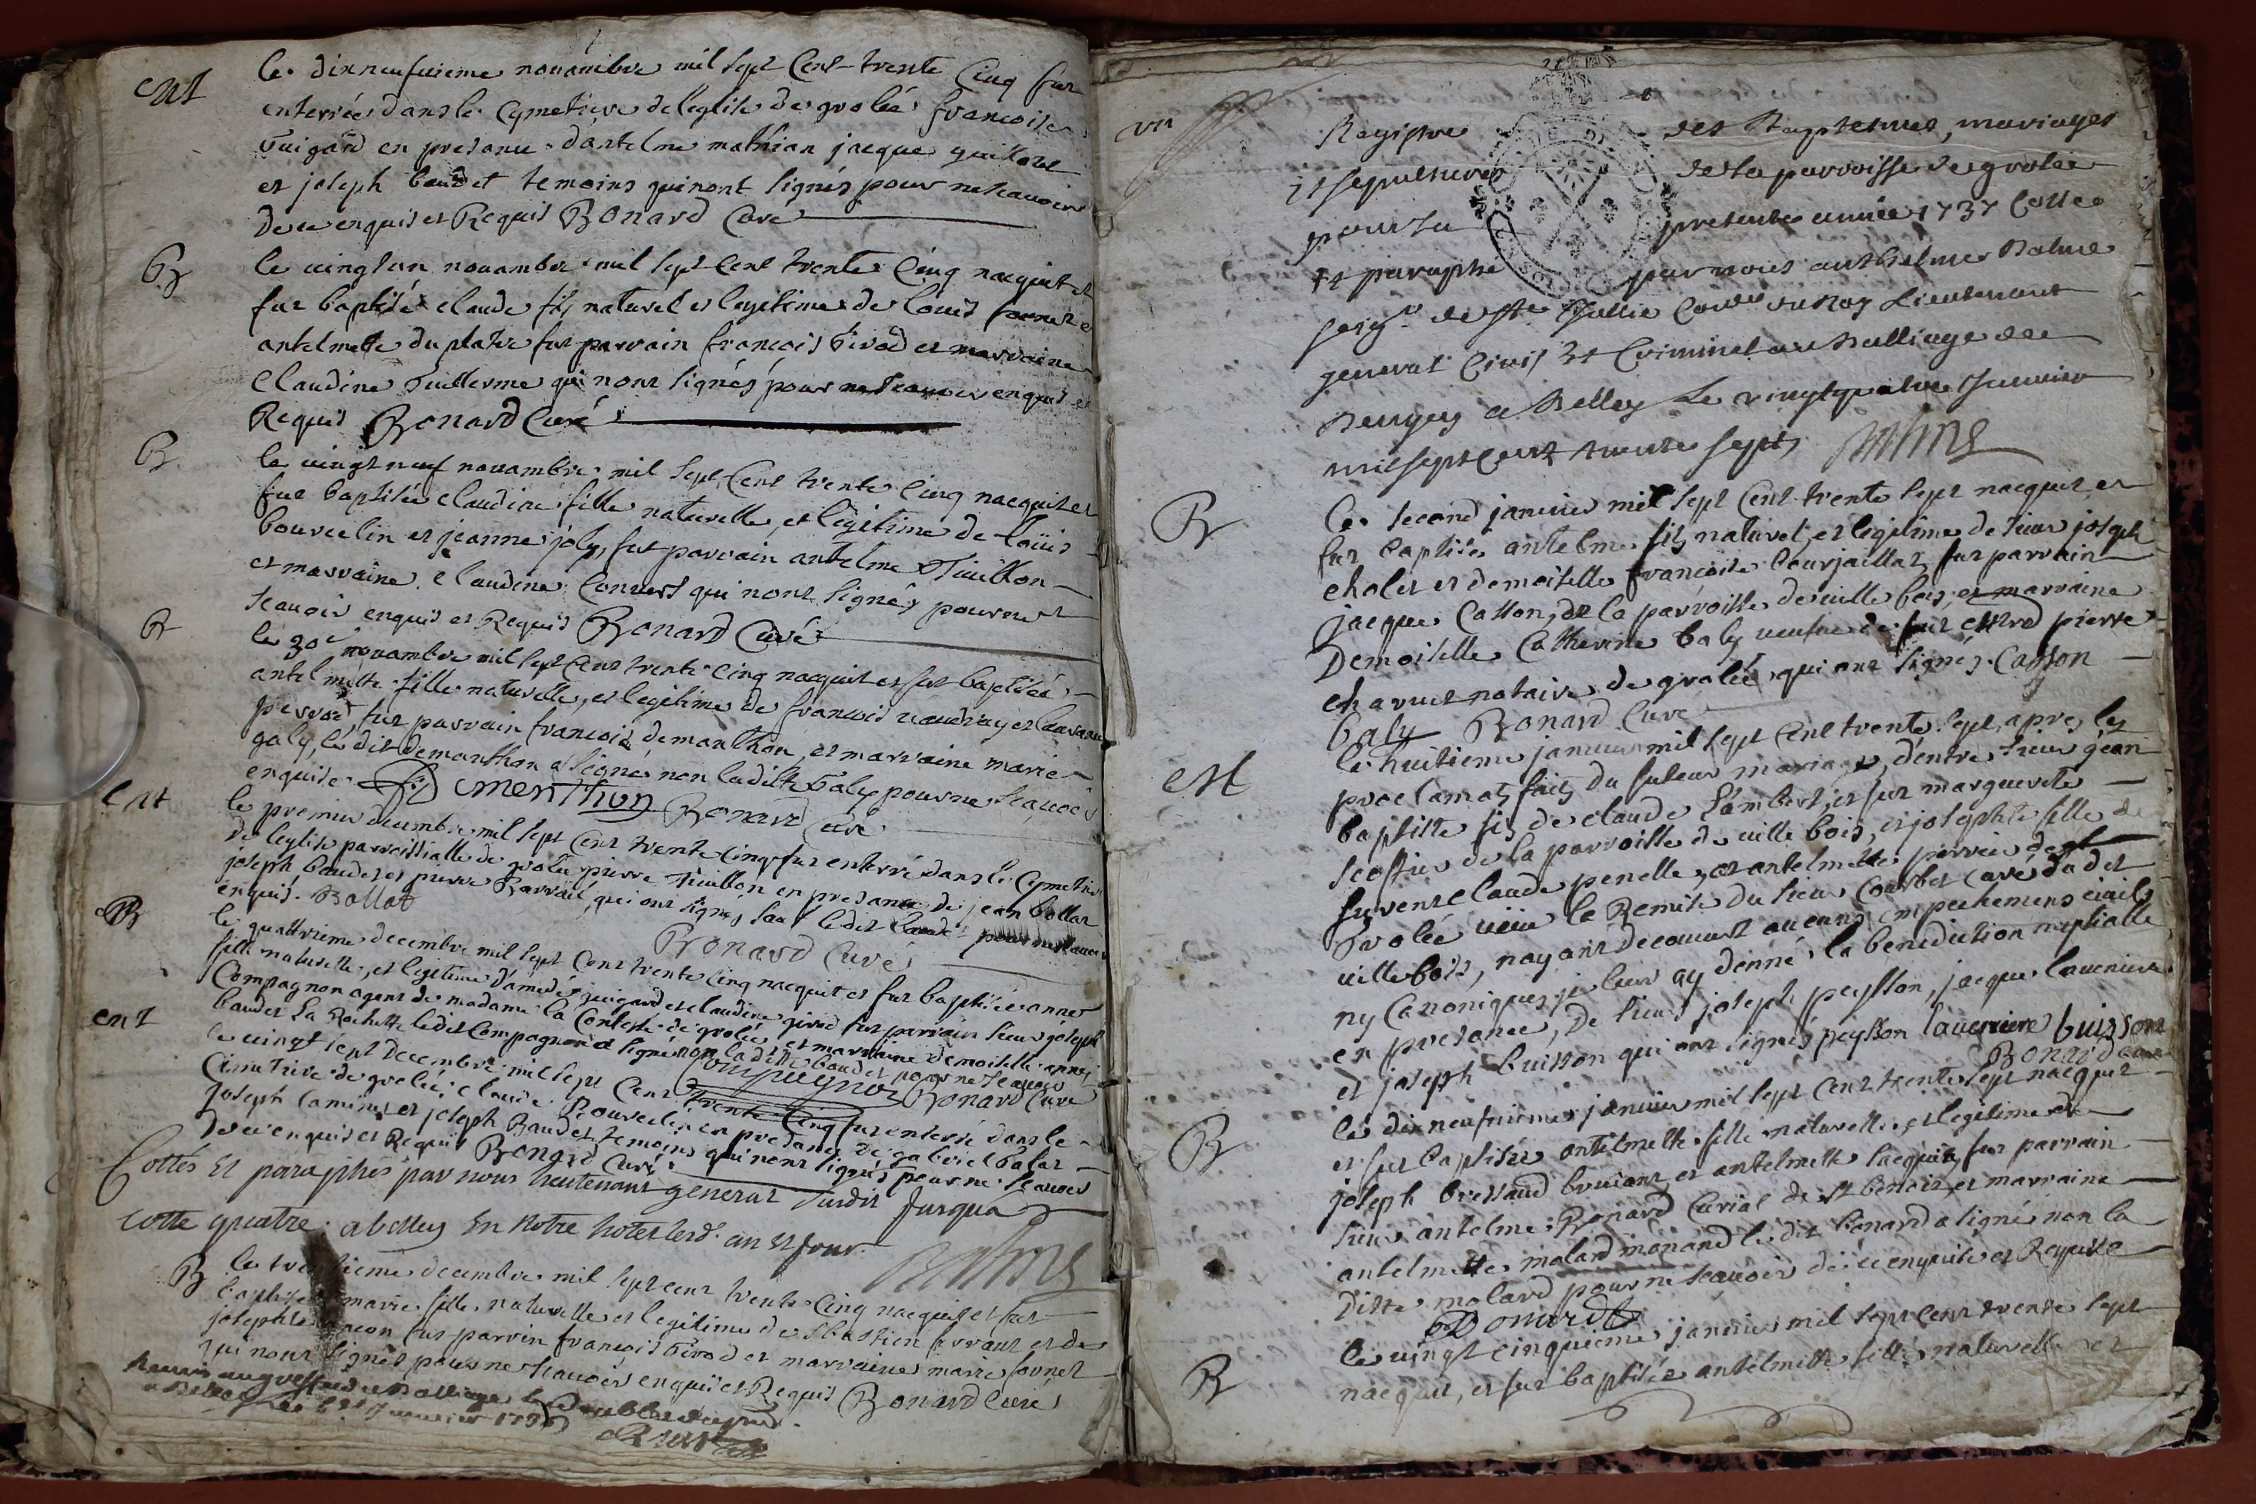 ent
le dixneufuieme nouambre mil sept Cent trente Cinq fut
enterrée dans le Cymetiere de leglise de grolée francoise
Guigard en presance dantelme mathian jacque guillot
et joseph baudet temoins qui nont signés pour ne scauoir
de ce enquis et Requis Bonard Curé
B
le uingt un nouambre mil sept Cent trente Cinq nacquit et
fut baptisé claude fils naturel et legitime de louis fornet et
antelmette du platre fut parrain francois Girod et marraine
Claudine Guillerme qui nont signés pour ne scauoir enquis et
Requis Bonard Curé
B
le uingt neuf nouambre mil sept Cent trente Cinq nacquit et
fut baptisée claudine fille naturelle et legitime de loüis
bourcelin et jeanne joly fut parrain antelme Guillon
et marraine claudine Conuert qui nont signés pour ne
scauoir enquis et Requis Bonard Curé
B
le 30e nouambre mil sept Cent trente Cinq nacquit et fut baptisée
antelmette fille naturelle et legitime de francois
fut parrain francois demanthon et marraine marie
galy, le dit demanthon a signé non la ditte Galy pour ne scauoir
enquise Dementhon Bonard Curé
ent
le premier decembre mil sept Cent trente Cinq fut enterré dans le Cymetiere
de leglise parroissialle de grolée pierre Guillon en presance de jean bollat
joseph baudet et pierre qui ont signés sauf le dit baudet pour ne scauoir
enquis. Bollat Bonard Curé
B
le quattrieme decembre mil sept Cent trente Cinq nacquit et fut baptisée anne
fille naturelle et legitime damedé guigard et claudine girod fut parrain sieur joseph
Compagnon agent de madame la Contesse de grolée et marraine demoiselle anne
baudet La Rochette le dit Compagnon a signé non la ditte baudet pour ne scauoir
Compagnon Bonard Curé
ent
le uingt sept Decembre mil sept Cent trente Cinq fut enterré dans le
Cimetiere de grolée claude Bourcelin en presance de gabriel balat
joseph et joseph Baudet temoins qui nont signés pour ne scauoir
de ce enquis et Requis Bonard Curé
Cottés et paraphés par nous lieutenant general susdit jusqua
cotte quatre. a belley En Notre hotel lesd. an et jour.
B
le decembre mil sept cent trente Cinq nacquit et fut
baptisée marie fille naturelle et legitime de sebastien et de
josephte fut parrin francois Girod et marraine marie fornet
qui nont signés pour ne scauoir enquis et Requis Bonard Curé
1736
Registre des Baptesmes, mariages
et sepultures de la parroisse de grolée
pour la presente année 1737 Cottée
et paraphé par nous anthelme Balme
seigr. de Ste Jullie Coner du Roy Lieutenant
general Civil Et Criminel au Balliage de
Beugey a Belley Le vingtquatre Januier
mil sept cent trente sept
B
le second januier mil sept Cent trente sept nacquit et
fut baptisé antelme fils naturel et legitime de sieur joseph
cholet et demoiselle francoise bourjaillat fut parrain
jacque Casson de la parroisse de uille bois, et marraine
Demoiselle Catherine baly ueufue de feut pierre
charuet notaire de grolée qui ont signés. Casson
baly Bonard Curé
M
le huitieme januier mil sept Cent trente sept apres les
proclamats faits du futeur mariage, dentre sieur jean
baptiste fils de claude Lambert, et fut marguerete
de la parroisse de uille bois, et josephte fille de
claude penelle, et antelmette perrin de
Grolée ueüe le Remise du sieur Courbet curé dudit
uille bois, nayant decouuert aucuns empechemens ciuils
ny Canoniques je leur ay donné la benediction nuptialle
en presance, De sieurs joseph peysson, jacque lauerriere
et joseph buisson qui ont signés peysson lauerriere buisson
Bonard Curé
B
le dixneufuieme januier mil sept Cent trente sept nacquit
et fut baptisée antelmette fille naturelle et legitime de
joseph bressand bruiant et antelmette jacquin, fut parrain
sieur antelme Bonard Curial de st benoit, et marraine
antelmette molard monand le dit bonard a signé non la
ditte molard pour ne scauoir de ce enquise et Requise
Bonard
B
le uingt cinquieme januier mil sept cent trente sept
nacquit, et fut baptisée antelmette fille naturelle et